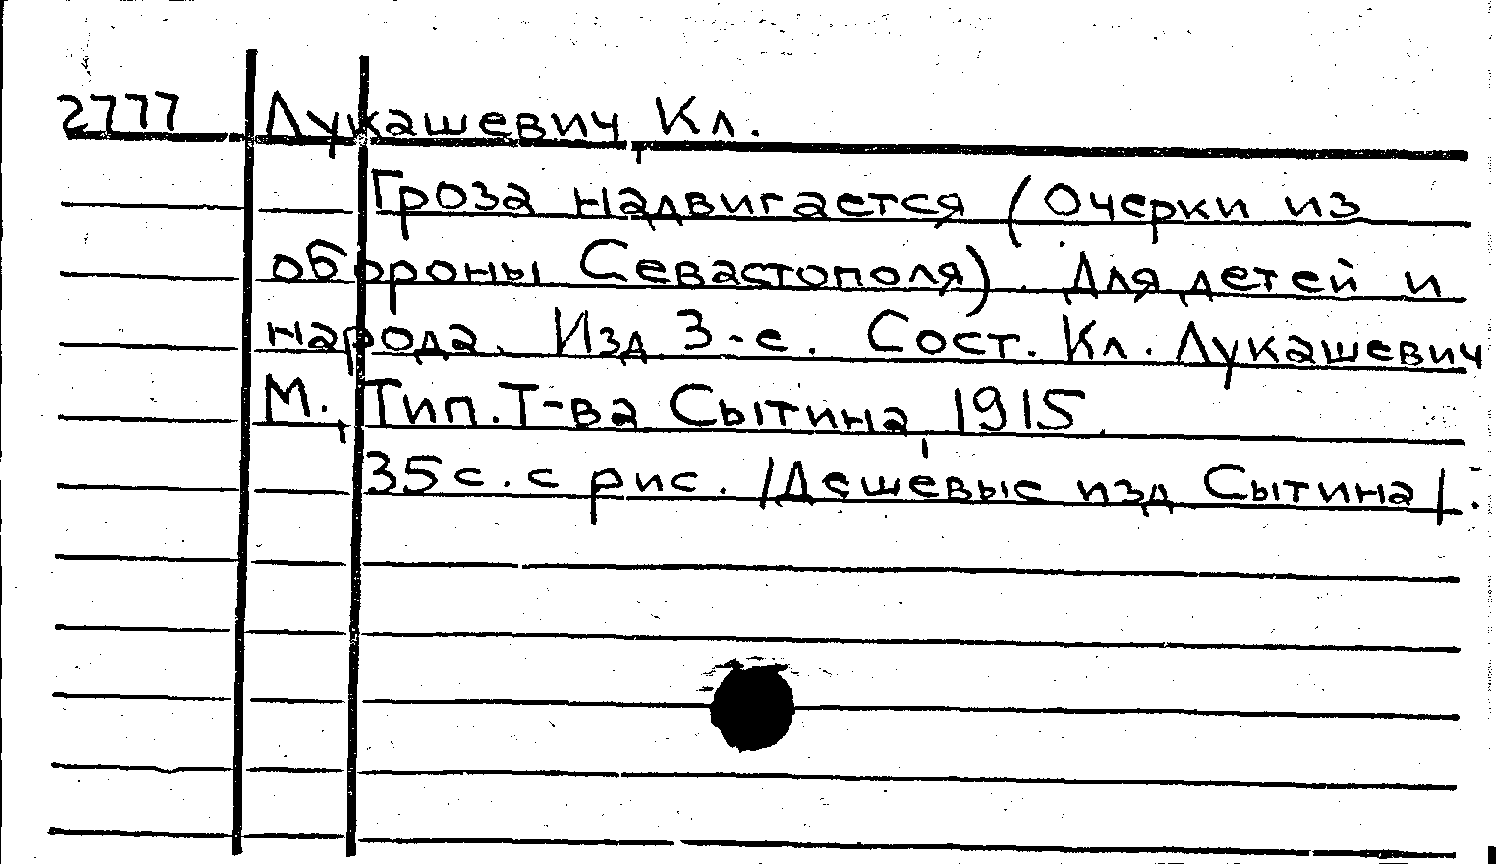 2777 Лукашевич, Кл.
Гроза надвигается (Очерки из
обороны Севастополя). Для детей и
народа. Изд. 3-е. Сост. Кл. Лукашевич
М., Тип. Т-ва Сытина, 1915.
35 с. с рис. /Дешевые изд Сытина/.